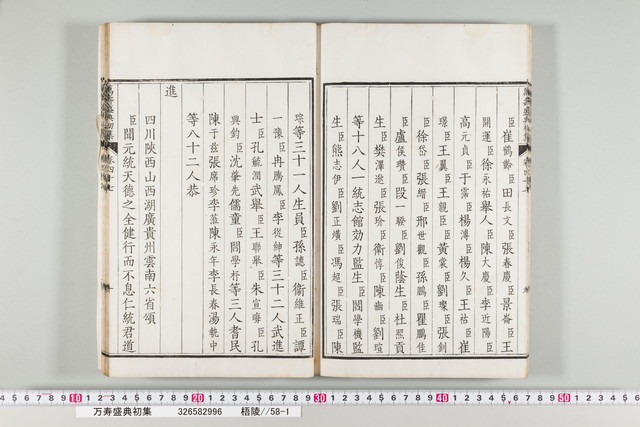 臣崔鶴齡臣田長文臣張春慶臣景崙臣王
開運臣徐永祐舉人臣陳大慶臣李近陽臣
高元貞臣于霈臣楊溥臣楊久臣王祜臣崔
璟臣王翼臣王親臣黃裳臣劉璨臣張釗
臣徐岱臣張縉臣邢世觀臣孫鵬臣瞿鵬佳
臣盧俟瓚臣段一騄臣劉俊蔭生臣杜照貢
生臣樊澤逖臣張珍臣衛惇臣陳幽臣劉瑄
等十八人一統志館効力監生臣閻學機監
生臣熊志伊臣劉正爌臣馮超臣張瑞臣陳
琮等三十一人生員臣孫譓臣衛維正臣譚
一豫臣冉鷹鳳臣李從紳等三十二人武進
士臣孔毓潤武舉臣王聯舉臣朱宣晦臣孔
興鈞臣沈肇先儒童臣閻學杅等三人耆民
陳于兹張席珍李蒞陳永年李長春湯乾中
等八十二人恭
進
四川陝西山西湖廣貴州雲南六省頌
臣聞元統天德之全健行而不息仁統君道
10 20 30 40 50
万寿盛典初集 326582996 梧陵//58-1